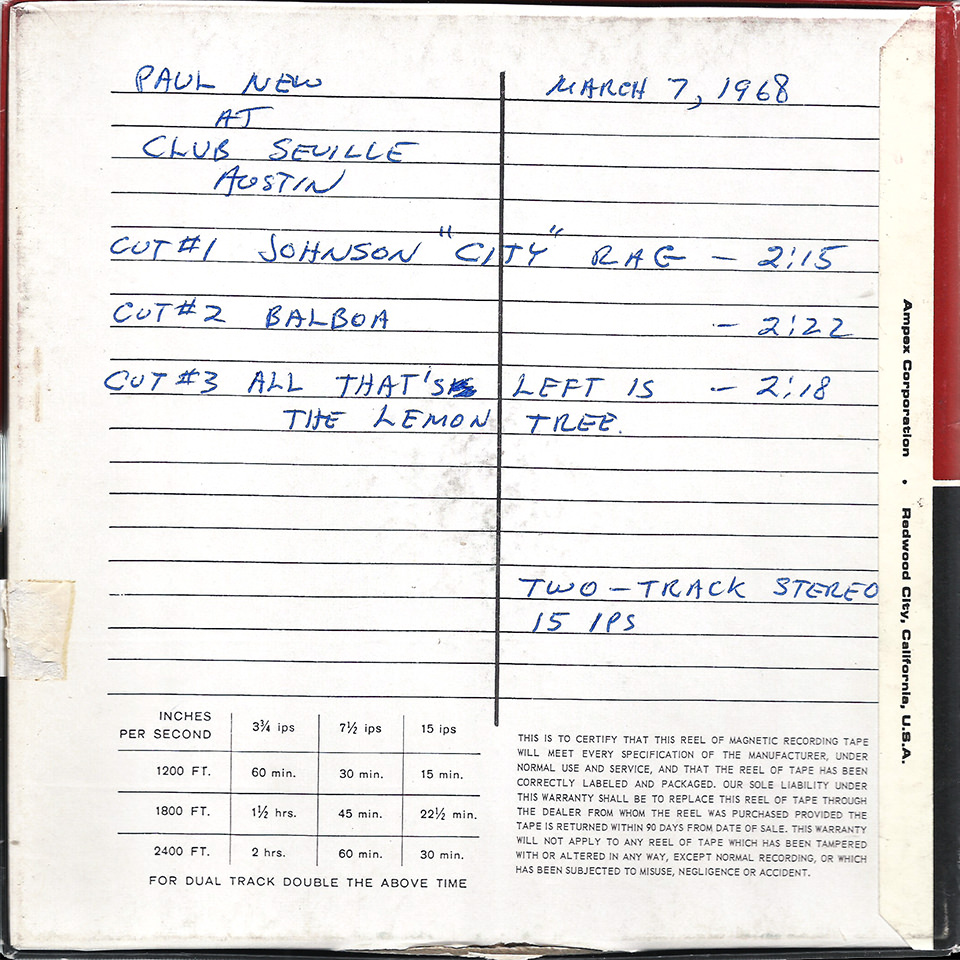 PAUL NEW
AT
CLUB SEVILLE
AUSTIN
MARCH 7, 1968
CUT #1 JOHNSON "CITY" RAG - 2:15
CUT #2 BALBOA - 2:22
CUT #3 ALL THAT'S LEFT IS - 2:18
THE LEMON TREE.
TWO-TRACK STEREO
15 IPS
INCHES PER SECOND 3¾ ips 7½ ips 15 ips
1200 FT. 60 min. 30 min. 15 min.
1800 FT. 1½ hrs. 45 min. 22½ min.
2400 FT. 2 hrs. 60 min. 30 min.
FOR DUAL TRACK DOUBLE THE ABOVE TIME
THIS IS TO CERTIFY THAT THIS REEL OF MAGNETIC RECORDING TAPE
WILL MEET EVERY SPECIFICATION OF THE MANUFACTURER, UNDER
NORMAL USE AND SERVICE, AND THAT THE REEL OF TAPE HAS BEEN
CORRECTLY LABELED AND PACKAGED. OUR SOLE LIABILITY UNDER
THIS WARRANTY SHALL BE TO REPLACE THIS REEL OF TAPE THROUGH
THE DEALER FROM WHOM THE REEL WAS PURCHASED PROVIDED THE
TAPE IS RETURNED WITHIN 90 DAYS FROM DATE OF SALE. THIS WARRANTY
WILL NOT APPLY TO ANY REEL OF TAPE WHICH HAS BEEN TAMPERED
WITH OR ALTERED IN ANY WAY, EXCEPT NORMAL RECORDING, OR WHICH
HAS BEEN SUBJECTED TO MISUSE, NEGLIGENCE OR ACCIDENT.
Ampex Corporation • Redwood City, California, U.S.A.